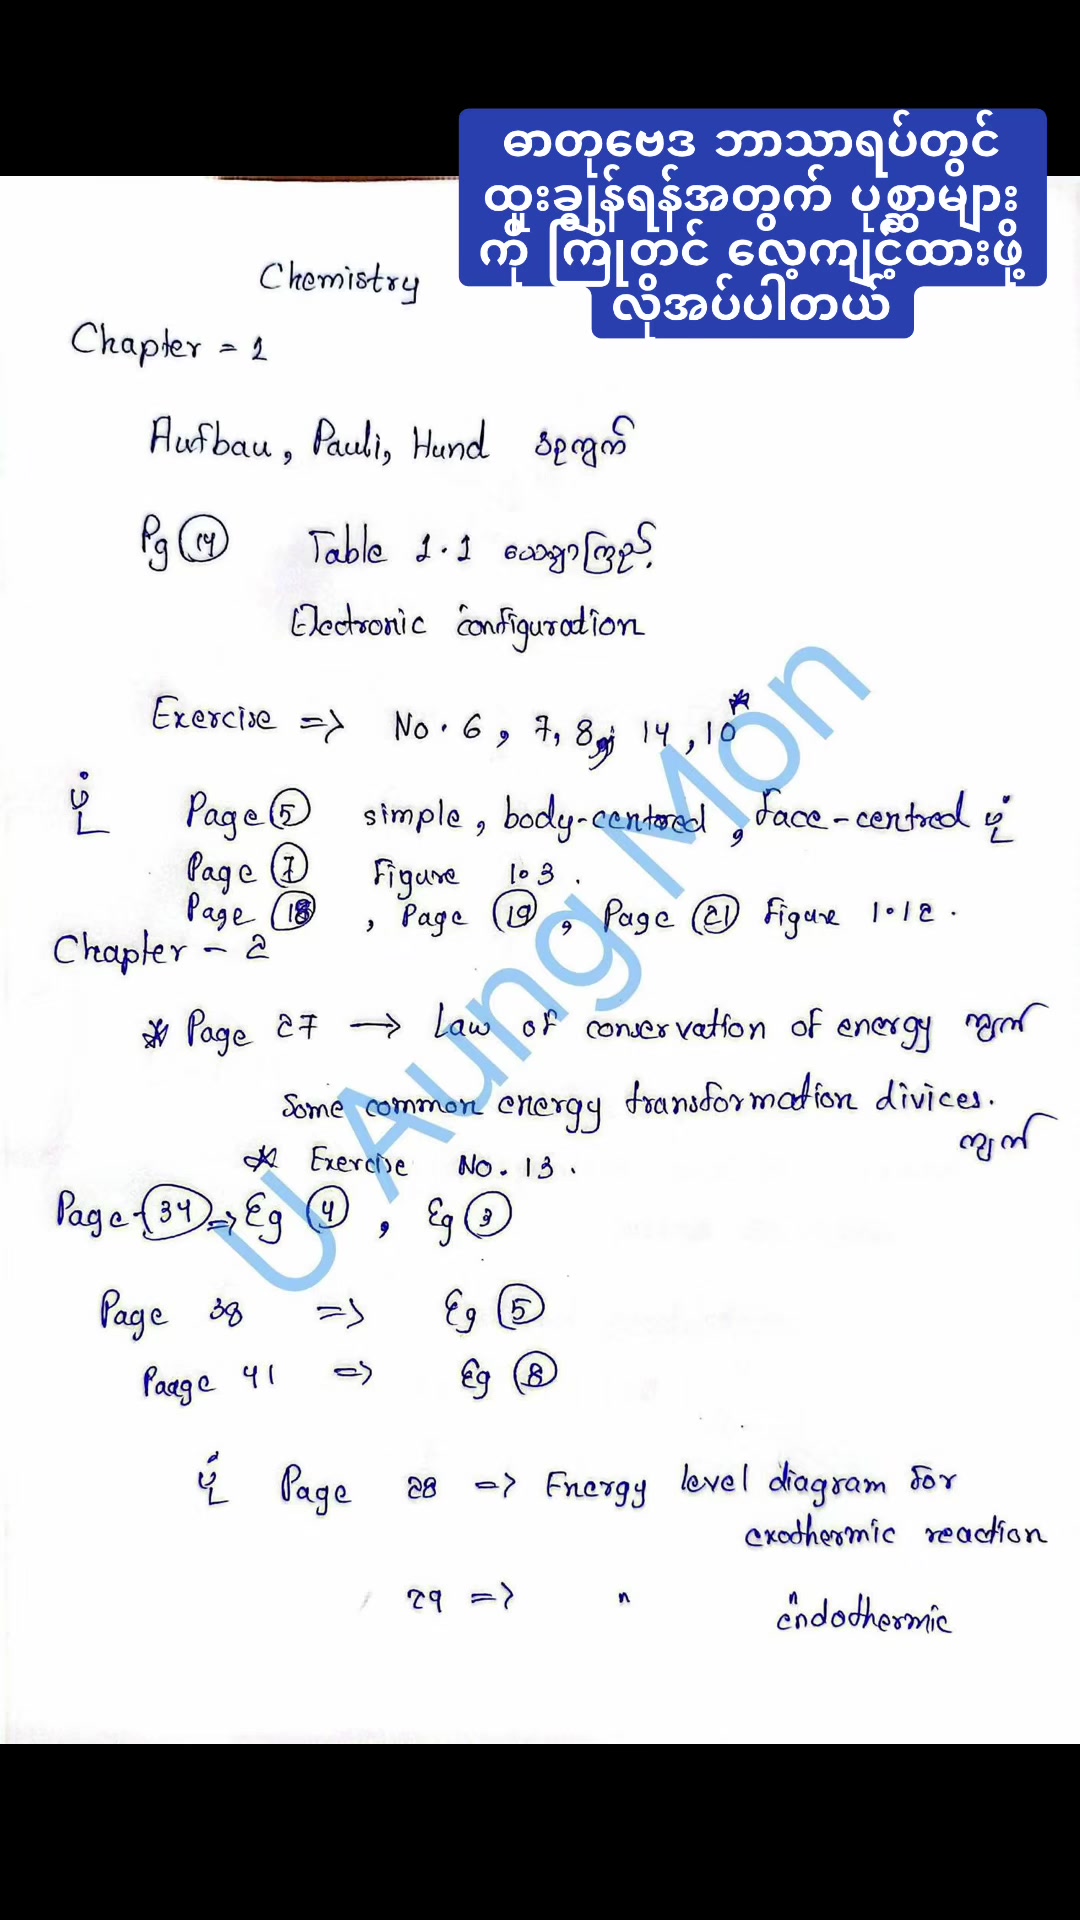 ဓာတုဗေဒ ဘာသာရပ်တွင်
ထူးချွန်ရန်အတွက် ပုစ္ဆာများ
ကို ကြိုတင် လေ့ကျင့်ထားဖို့
လိုအပ်ပါတယ်
Chemistry
Chapter = 1
Aufbau, Pauli, Hund ဒဉကျက်
Pg 14 Table 1.1 သေချာကြည့်
Electronic configuration
Exercise => No. 6, 7, 8, 14, 10*
ပုံ Page 5 simple, body-centered, face-centred ပုံ
Page 7 Figure 1.3.
Page 18, Page 19, Page 21 Figure 1.12.
Chapter - 2
* Page 27 → Law of conservation of energy ကျက်
Some common energy transformation divices.
ကျက်
* Exercise No. 13.
Page-34 => Eg 4, Eg 3
Page 38 => Eg 5
Paage 41 => Eg 8
ပုံ Page 28 => Energy level diagram for
exothermic reaction
29 => " "
endothermic
U Aung Mon